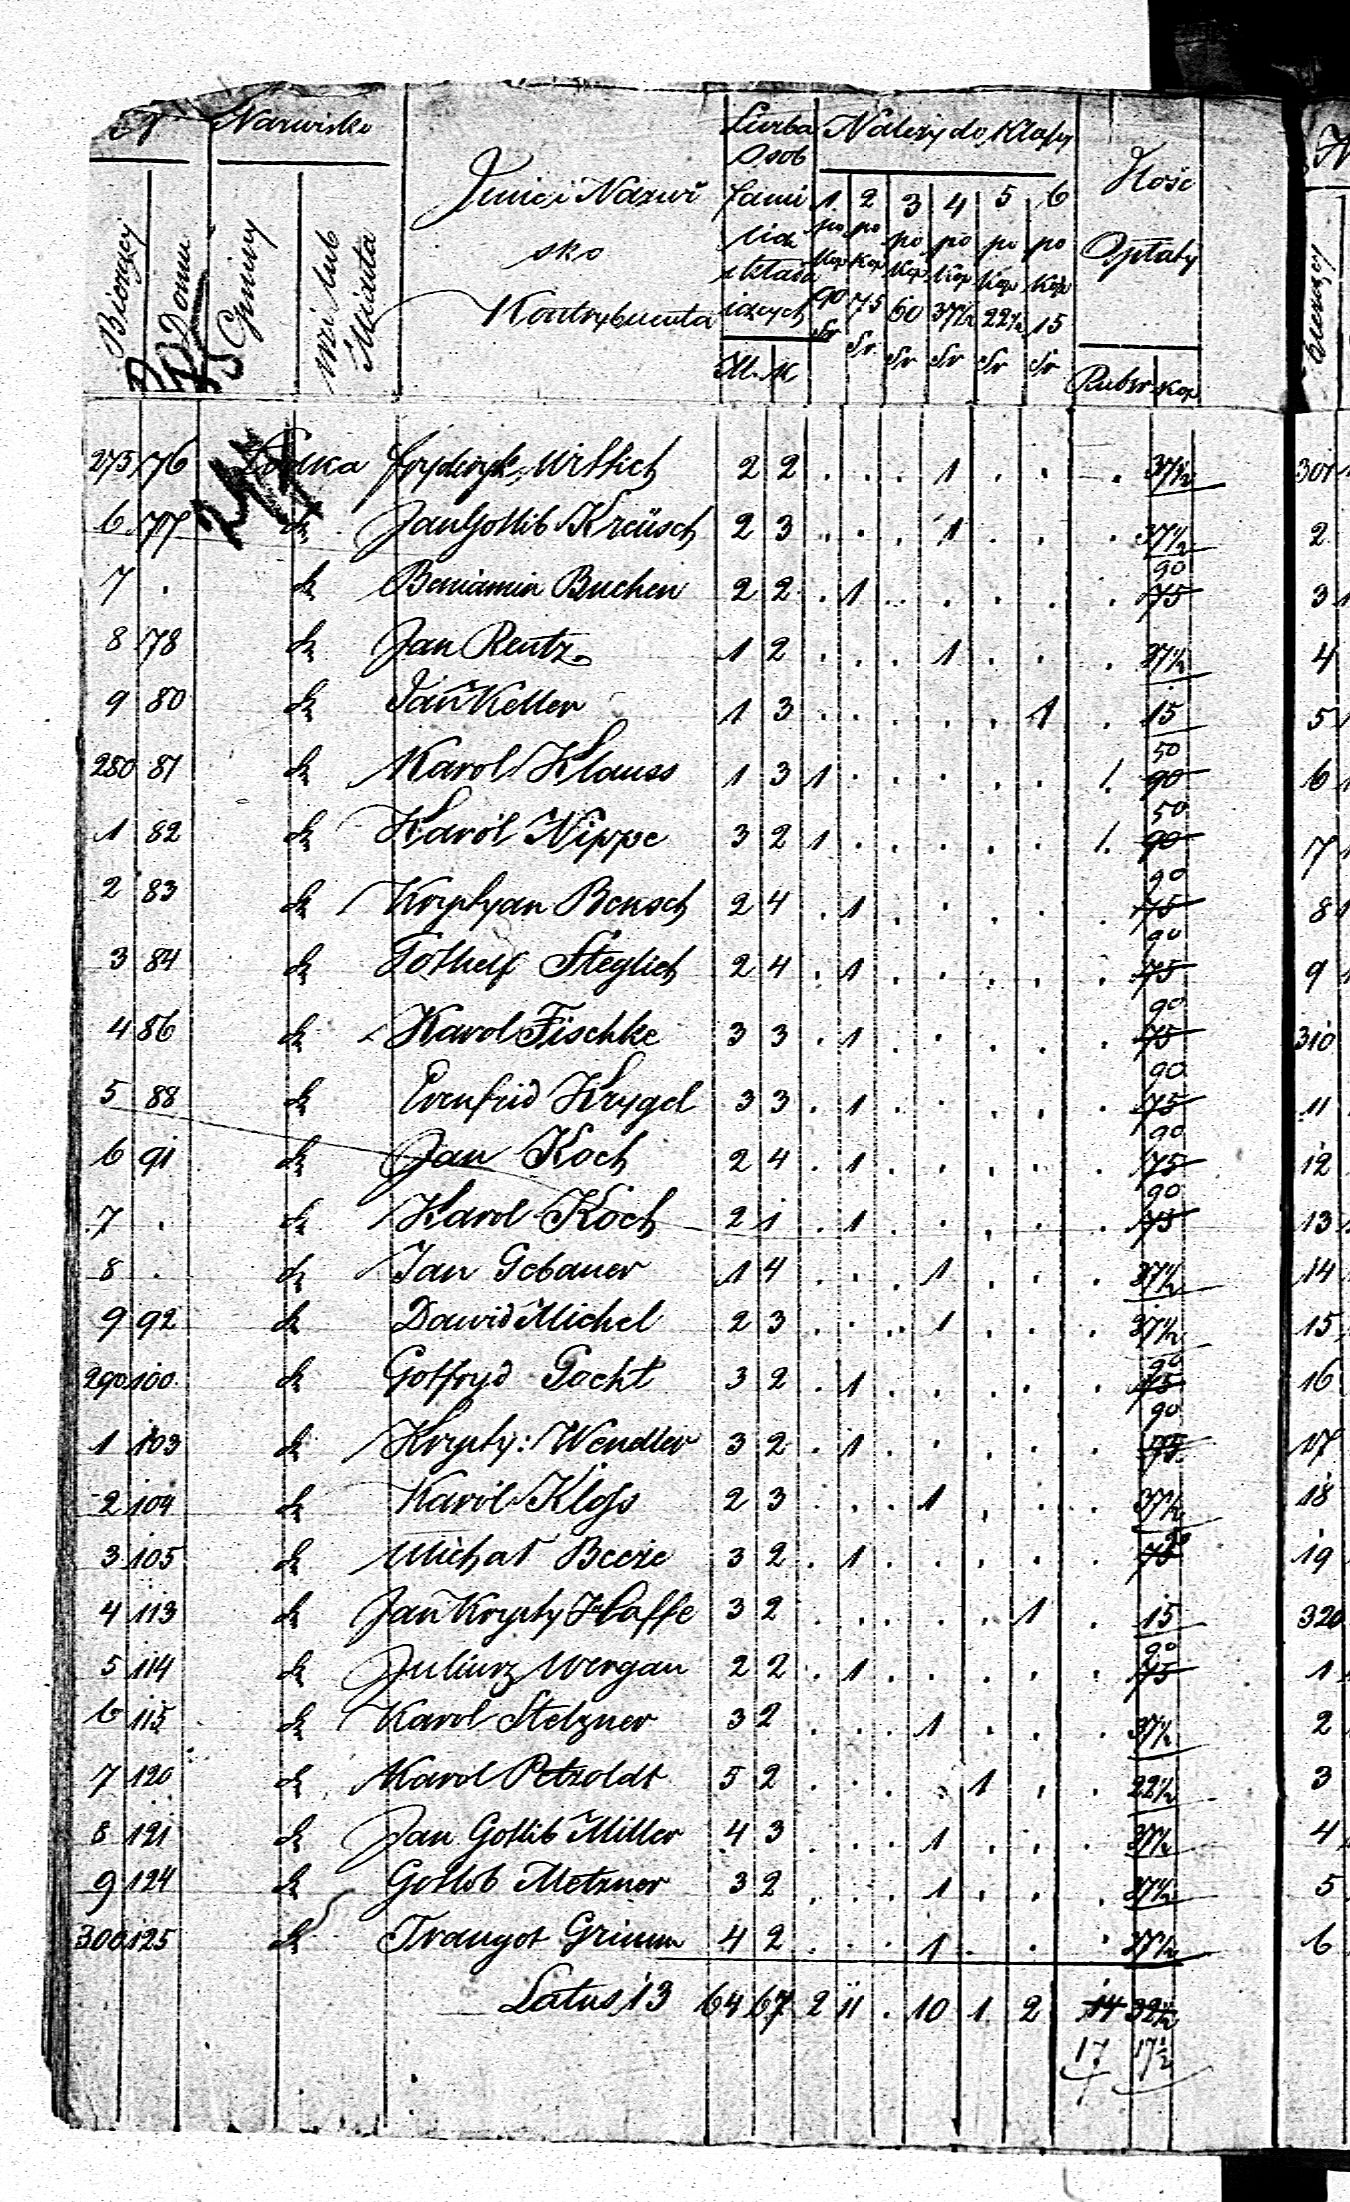 N Nazwisko Liczba Należy do Klassy
Osob
Imie i Nazwi fami 1 2 3 4 5 6 Ilość
sko lia po po po po po po Opłaty
składa Kop Kop Kop Kop Kop Kop
Kontrybuenta iących 90 75 60 37½ 22½ 15
Sr Sr Sr Sr Sr Sr
Bieżący Domu Gminy wsi lub Miasta
M. K Rubsr Kop
275 76 Łodka Fryderyk Wittich 2 2 . . . 1 . . . 37½
6 77 dt Jan Gottlib Kreüsch 2 3 . . . 1 . . . 37½
90
7 . dt Beniamin Buchen 2 2 . 1 . . . . . 75
8 78 dt Jan Rentz 1 2 . . . 1 . . . 37½
9 80 dt Jan Keller 1 3 . . . . . 1 . 15
50
280 81 dt Karol Klauss 1 3 1 . . . . . 1. 90
50
1 82 dt Karól Nippe 3 2 1 . . . . . 1. 90
90
2 83 dt Krystyan Bensch 2 4 . 1 . . . . . 75
90
3 84 dt Gothelf Steglich 2 4 . 1 . . . . . 75
90
4 86 dt Karol Fischke 3 3 . 1 . . . . . 75
90
5 88 dt Ernfrid Krygel 3 3 . 1 . . . . . 75
90
6 91 dt Jan Koch 2 4 . 1 . . . . . 75
90
7 . dt Karol Koch 2 1 . 1 . . . . . 75
8 . dt Jan Gebauer 1 4 . . . 1 . . . 37½
9 92 dt Dawid Michel 2 3 . . . 1 . . . 37½
90
290 100 dt Gotfryd Gocht 3 2 . 1 . . . . . 75
90
1 103 dt Krysty: Wendler 3 2 . 1 . . . . . 75
2 104 dt Karól Kloss 2 3 . . . 1 . . . 37½
90
3 105 dt Michał Beeze 3 2 . 1 . . . . . 75
4 113 dt Jan Krysty Haffe 3 2 . . . . . 1 . 15
90
5 114 dt Juliusz Wergau 2 2 . 1 . . . . . 75
6 115 dt Karol Stelzner 3 2 . . . 1 . . . 37½
7 120 dt Karol Petzoldt 5 2 . . . . 1 . . 22½
8 121 dt Jan Gottlib Miller 4 3 . . . 1 . . . 37½
9 124 dt Gottlob Metzner 3 2 . . . 1 . . . 37½
300 125 dt Traugot Grimm 4 2 . . . 1 . . . 37½
Latus 13 64 67 2 11 . 10 1 2 14 32½
17 17½
307
2
3
4
5
6
7
8
9
310
11
12
13
14
15
16
17
18
19
320
1
2
3
4
5
6